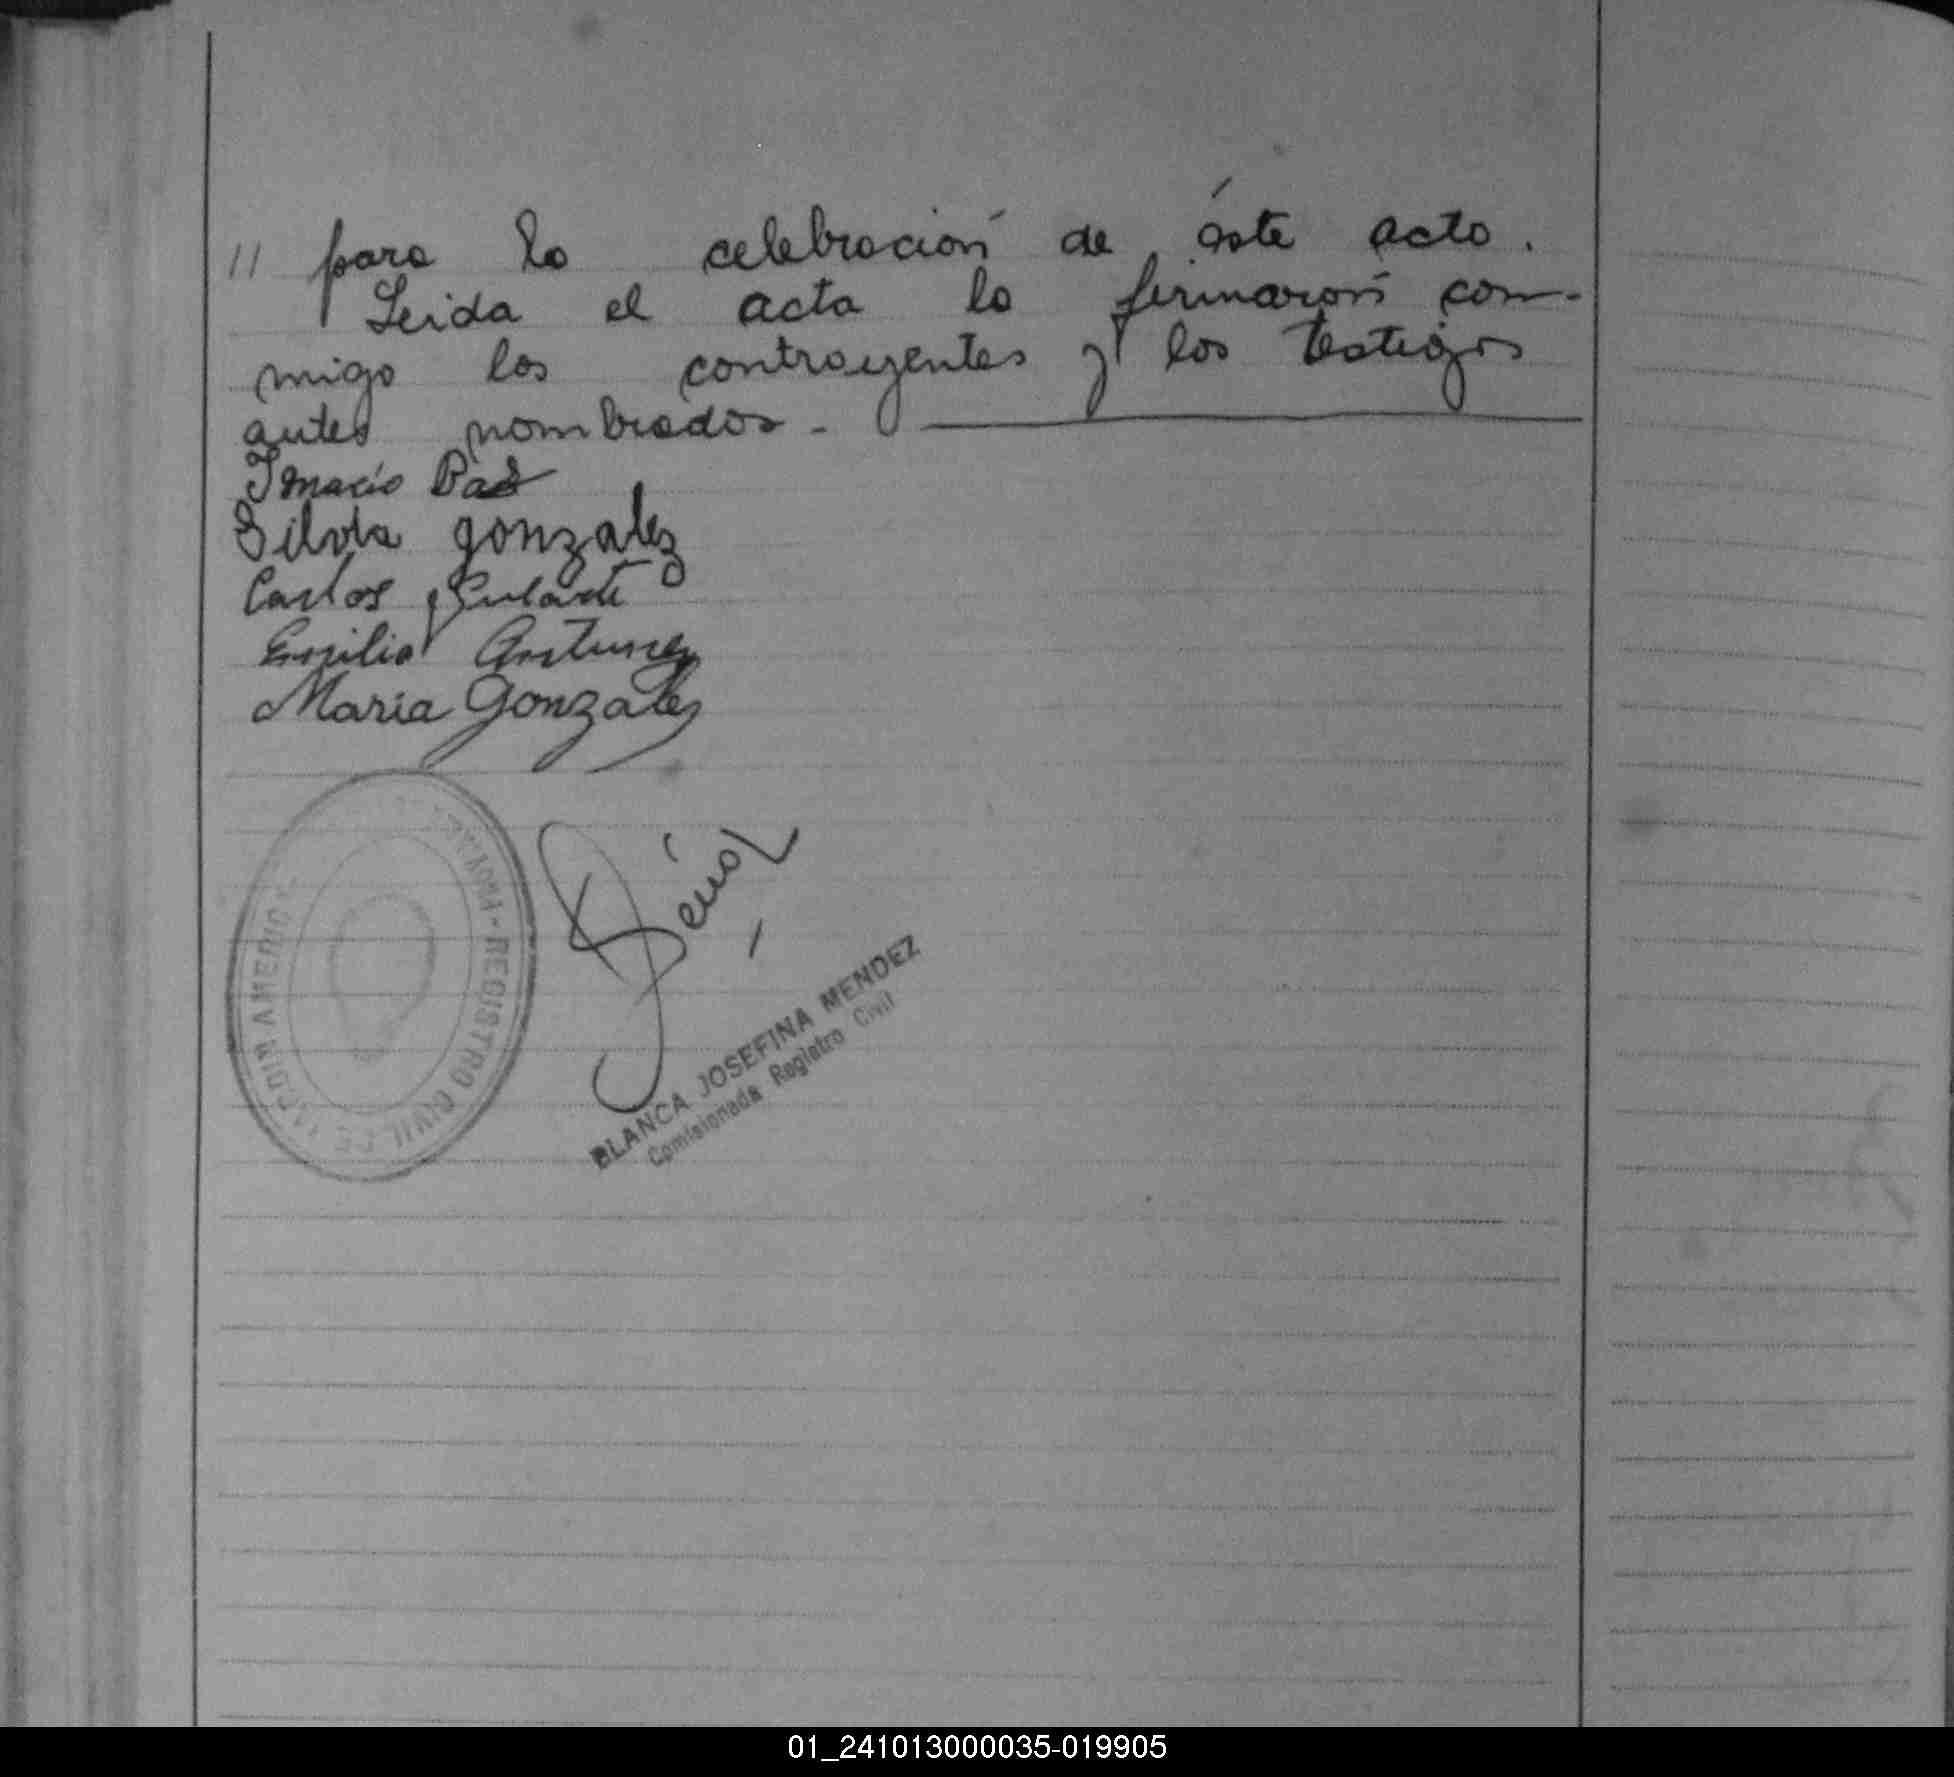 // para la celebración de éste acto.
Leida el acta la firmarón con-
migo los contrayentes y los testigos
antes nombrados.-
Ignacio Paz
Silvia gonzalez
Carlos Gularte
Emilia Antunez
María Gonzalez
REGISTRO CIVIL DE JARDIN AMERICA
BLANCA JOSEFINA MENDEZ
Comisionada Registro Civil
01_241013000035-019905